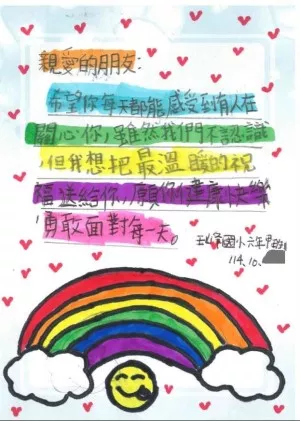 親愛的朋友:
希望你每天都能感受到有人在
關心你,雖然我們不認識
,但我想把最溫暖的祝
福送給你,願你健康快樂
勇敢面對每一天。
國小六年
114.10.